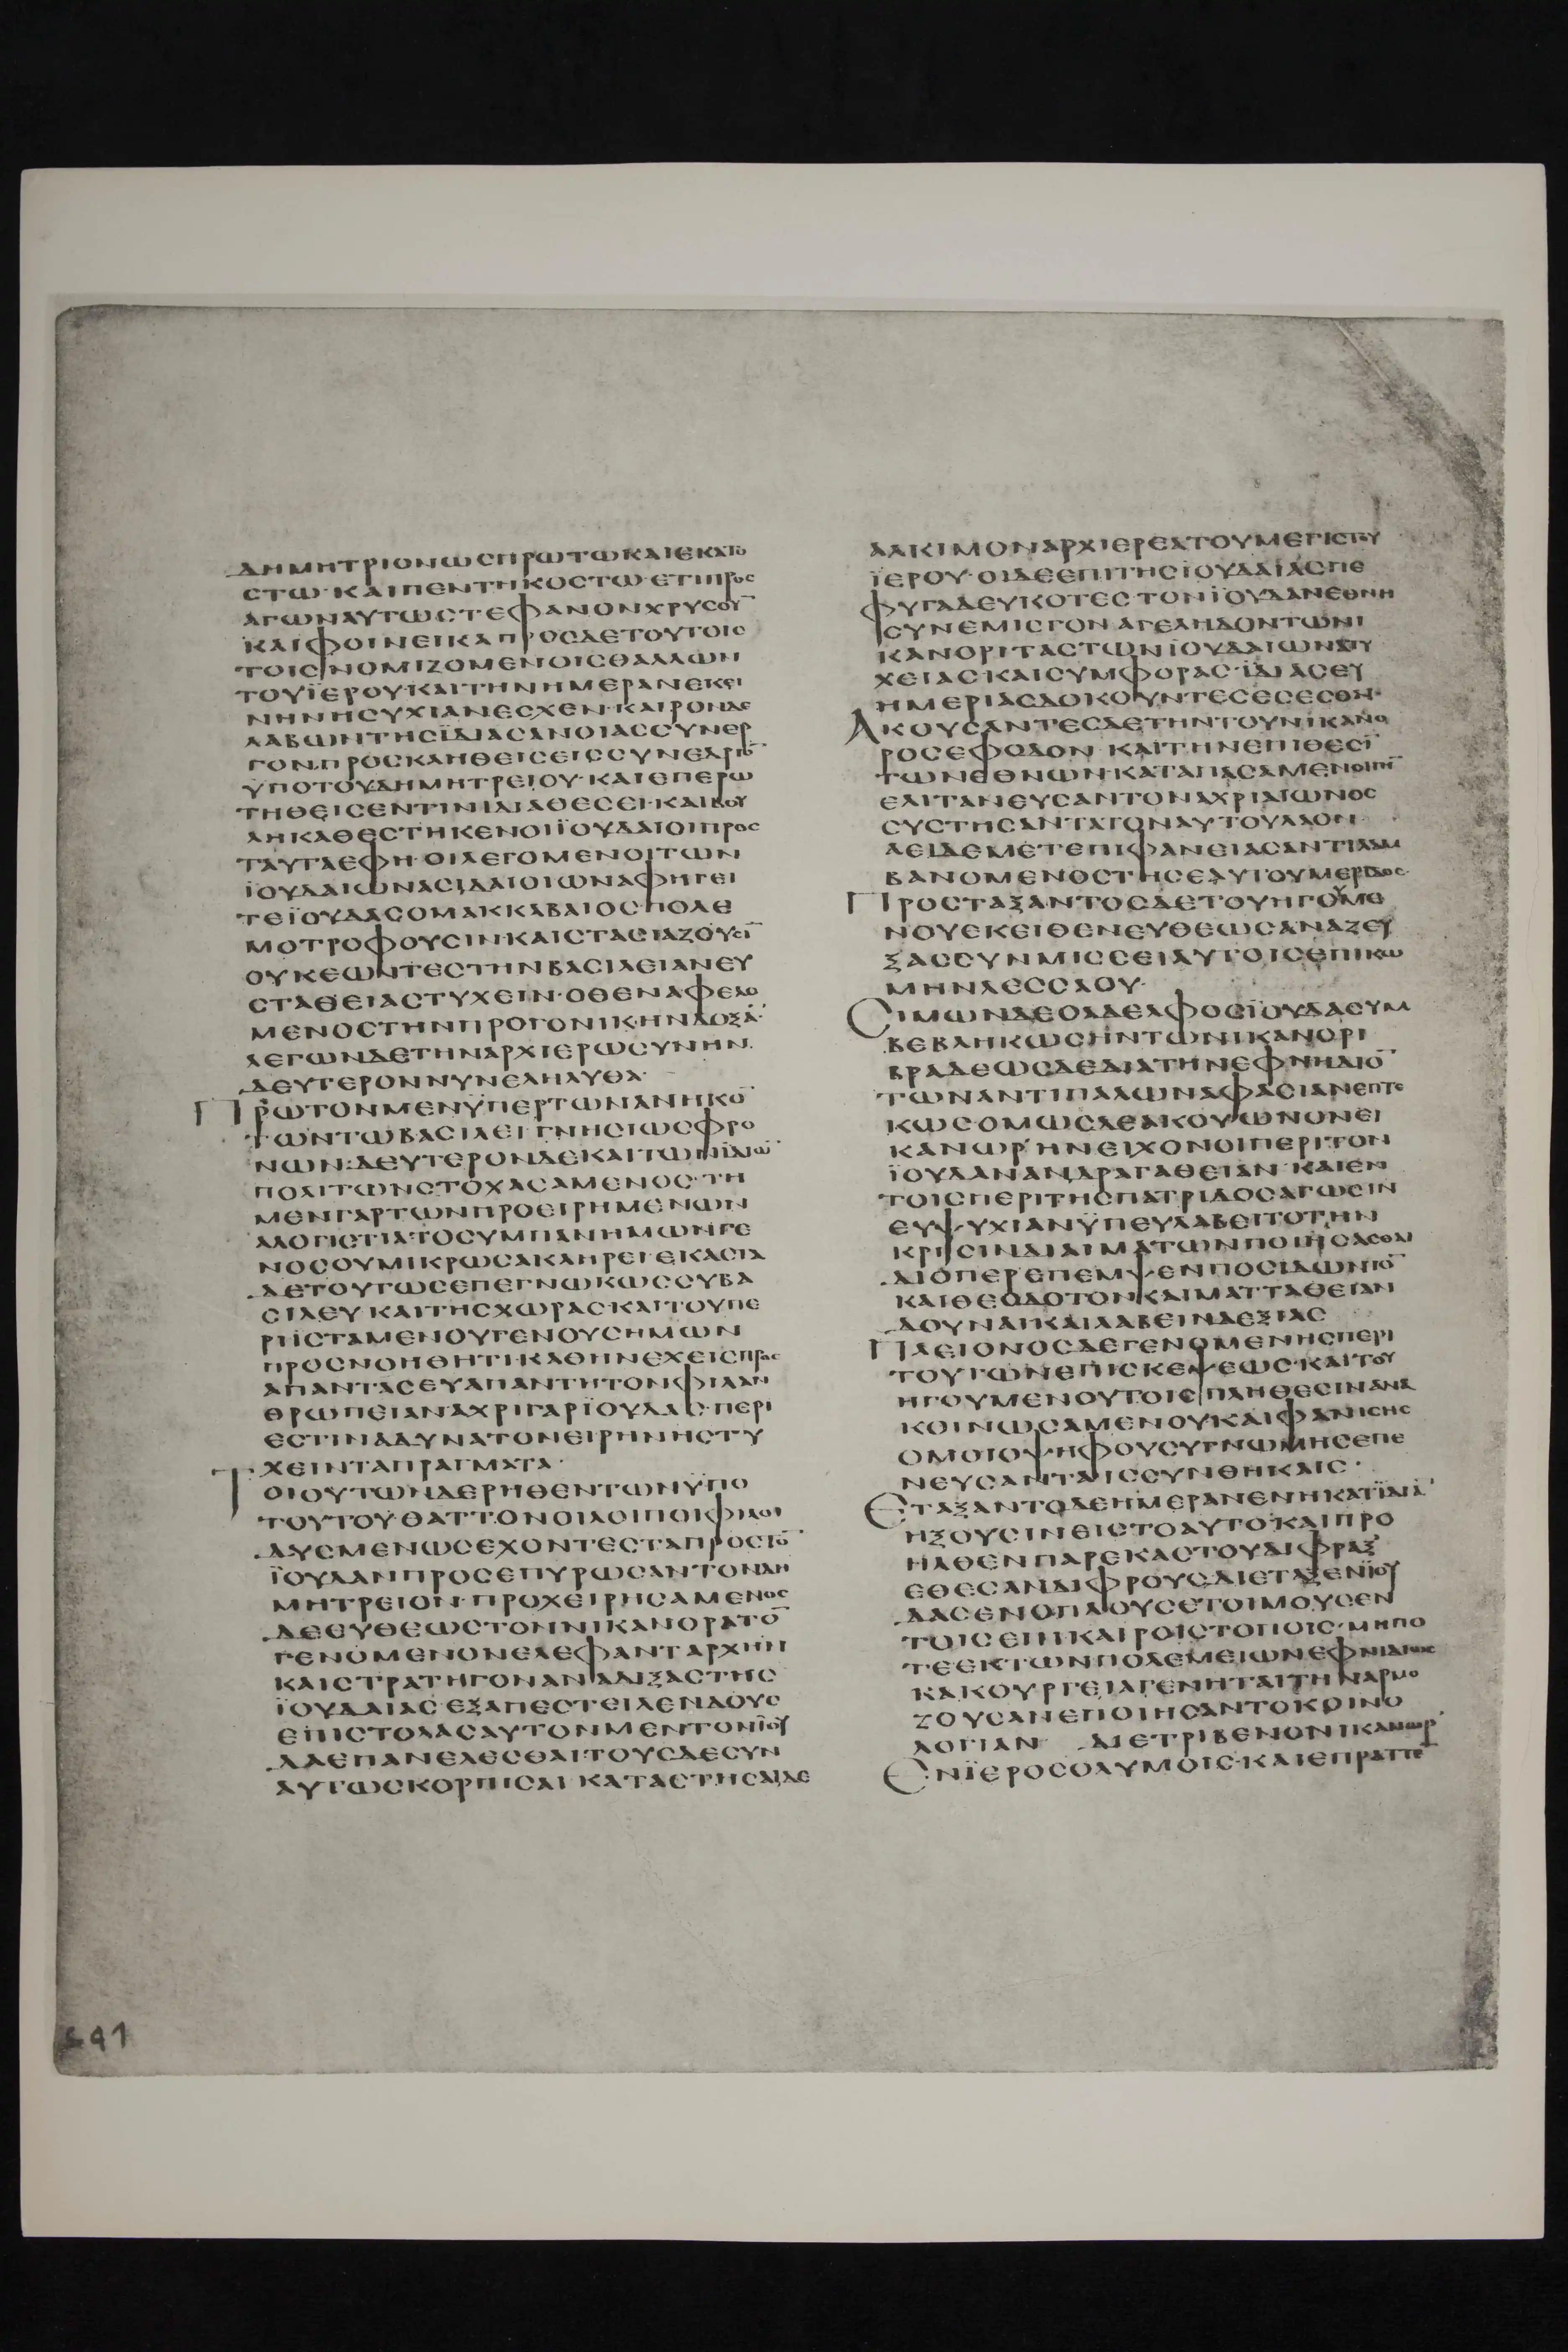 ΔΗΜΗΤΡΙΟΝΩΣΠΡΩΤΩΚΑΙΕΚΑΤΟ
ΣΤΩ·ΚΑΙΠΕΝΤΗΚΟΣΤΩ·ΕΤΙΠΡΟΣ
ΑΓΩΝΑΥΤΩΣΤΕΦΑΝΟΝΧΡΥΣΟΥ̅
ΚΑΙΦΟΙΝΕΙΚΑΠΡΟΣΔΕΤΟΥΤΟΙΣ
ΤΟΙΣΝΟΜΙΖΟΜΕΝΟΙΣΘΑΛΛΩΝ
ΤΟΥΪΕΡΟΥ·ΚΑΙΤΗΝΗΜΕΡΑΝΕΚΕΙ
ΝΗΝΗΣΥΧΙΑΝΕΣΧΕΝ·ΚΑΙΡΟΝΔΕ
ΛΑΒΩΝΤΗΣΪΔΙΑΣΑΝΟΙΑΣΣΥΝΕΡ
ΓΟΝ·ΠΡΟΣΚΛΗΘΕΙΣΕΙΣΣΥΝΕΔΡΙΟ̅
ΫΠΟΤΟΥΔΗΜΗΤΡΕΙΟΥ·ΚΑΙΕΠΕΡΩ
ΤΗΘΕΙΣΕΝΤΙΝΙΔΙΑΘΕΣΕΙ·ΚΑΙΒΟΥ
ΛΗΚΑΘΕΣΤΗΚΕΝΟΙΪΟΥΔΑΙΟΙΠΡΟΣ
ΤΑΥΤΑΕΦΗ·ΟΙΛΕΓΟΜΕΝΟΙΤΩΝ
ΪΟΥΔΑΙΩΝΑΣΙΔΑΙΟΙΩΝΑΦΗΓΕΙ
ΤΕΪΟΥΔΑΣΟΜΑΚΚΑΒΑΙΟΣ·ΠΟΛΕ
ΜΟΤΡΟΦΟΥΣΙΝ·ΚΑΙΣΤΑΣΙΑΖΟΥΣΙ̅
ΟΥΚΕΩΝΤΕΣΤΗΝΒΑΣΙΛΕΙΑΝΕΥ
ΣΤΑΘΕΙΑΣΤΥΧΕΙΝ·ΟΘΕΝΑΦΕΛΟ
ΜΕΝΟΣΤΗΝΠΡΟΓΟΝΙΚΗΝΔΟΞΑ̅·
ΛΕΓΩΝΔΕΤΗΝΑΡΧΙΕΡΩΣΥΝΗΝ·
ΔΕΥΤΕΡΟΝΝΥΝΕΛΗΛΥΘΑ·
ΠΡΩΤΟΝΜΕΝΫΠΕΡΤΩΝΑΝΗΚΟ̅
ΤΩΝΤΩΒΑΣΙΛΕΙΓΝΗΣΙΩΣΦΡΟ
ΝΩΝ:ΔΕΥΤΕΡΟΝΔΕΚΑΙΤΩΝΪΔΙΩ̅
ΠΟΛΙΤΩΝΣΤΟΧΑΣΑΜΕΝΟΣ·ΤΗ
ΜΕΝΓΑΡΤΩΝΠΡΟΕΙΡΗΜΕΝΩΝ
ΑΛΟΓΙΣΤΙΑΤΟΣΥΜΠΑΝΗΜΩΝΓΕ
ΝΟΣΟΥΜΙΚΡΩΣΑΚΛΗΡΕΙ·ΕΚΑΣΤΑ
ΔΕΤΟΥΤΩΣΕΠΕΓΝΩΚΩΣΣΥΒΑ
ΣΙΛΕΥΚΑΙΤΗΣΧΩΡΑΣΚΑΙΤΟΥΠΕ
ΡΙΪΣΤΑΜΕΝΟΥΓΕΝΟΥΣΗΜΩΝ
ΠΡΟΣΝΟΗΘΗΤΙ·ΚΑΘΗΝΕΧΕΙΣΠΡΟΣ
ΑΠΑΝΤΑΣΕΥΑΠΑΝΤΗΤΟΝΦΙΛΑΝ
ΘΡΩΠΕΙΑΝ·ΑΧΡΙΓΑΡΪΟΥΔΑΣ·ΠΕΡΙ
ΕΣΤΙΝΑΔΥΝΑΤΟΝΕΙΡΗΝΗΣΤΥ
ΧΕΙΝΤΑΠΡΑΓΜΑΤΑ·
ΤΟΙΟΥΤΩΝΔΕΡΗΘΕΝΤΩΝΫΠΟ
ΤΟΥΤΟΥ·ΘΑΤΤΟΝΟΙΛΟΙΠΟΙΦΙΛΟΙ
ΔΥΣΜΕΝΩΣΕΧΟΝΤΕΣΤΑΠΡΟΣΤΟ̅
ΪΟΥΔΑΝΠΡΟΣΕΠΥΡΩΣΑΝΤΟΝΔΗ
ΜΗΤΡΕΙΟΝ·ΠΡΟΧΕΙΡΗΣΑΜΕΝΟΣ
ΔΕΕΥΘΕΩΣΤΟΝΝΙΚΑΝΟΡΑΤΟ̅
ΓΕΝΟΜΕΝΟΝΕΛΕΦΑΝΤΑΡΧΗΝ
ΚΑΙΣΤΡΑΤΗΓΟΝΑΝΑΔΙΞΑΣΤΗΣ
ΪΟΥΔΑΙΑΣ·ΕΞΑΠΕΣΤΕΙΛΕΝΔΟΥΣ
ΕΠΙΣΤΟΛΑΣΑΥΤΟΝΜΕΝΤΟΝΪΟΥ
ΔΑΕΠΑΝΕΛΕΣΘΑΙ·ΤΟΥΣΔΕΣΥΝ
ΑΥΤΩΣΚΟΡΠΙΣΑΙΚΑΤΑΣΤΗΣΑΙΔΕ
ΑΛΚΙΜΟΝΑΡΧΙΕΡΕΑΤΟΥΜΕΓΙΣΤΟΥ
ΪΕΡΟΥ·ΟΙΔΕΕΠΙΤΗΣΪΟΥΔΑΙΑΣΠΕ
ΦΥΓΑΔΕΥΚΟΤΕΣΤΟΝΪΟΥΔΑΝΕΘΝΗ
ΣΥΝΕΜΙΣΓΟΝΑΓΕΛΗΔΟΝΤΩΝΙ
ΚΑΝΟΡΙΤΑΣΤΩΝΪΟΥΔΑΙΩΝΑΤΥ
ΧΕΙΑΣΚΑΙΣΥΜΦΟΡΑΣ·ΪΔΙΑΣΕΥ
ΗΜΕΡΙΑΣΔΟΚΟΥΝΤΕΣΕΣΕΣΘΑΙ·
ΑΚΟΥΣΑΝΤΕΣΔΕΤΗΝΤΟΥΝΙΚΑΝΟ
ΡΟΣΕΦΟΔΟΝΚΑΙΤΗΝΕΠΙΘΕΣΙ̅
ΤΩΝΕΘΝΩΝ·ΚΑΤΑΠΑΣΑΜΕΝΟΙΓΗ̅
ΕΛΙΤΑΝΕΥΣΑΝΤΟΝΑΧΡΙΑΙΩΝΟΣ
ΣΥΣΤΗΣΑΝΤΑΤΟΝΑΥΤΟΥΛΑΟΝ·
ΑΕΙΔΕΜΕΤΕΠΙΦΑΝΕΙΑΣΑΝΤΙΛΑΜ
ΒΑΝΟΜΕΝΟΣΤΗΣΕΑΥΤΟΥΜΕΡΙΔΟΣ·
ΠΡΟΣΤΑΞΑΝΤΟΣΔΕΤΟΥΗΓΟΥΜΕ
ΝΟΥΕΚΕΙΘΕΝΕΥΘΕΩΣΑΝΑΖΕΥ
ΞΑΣΣΥΝΜΙΣΣΕΙΑΥΤΟΙΣΕΠΙΚΩ
ΜΗΝΔΕΣΣΑΟΥ·
ΣΙΜΩΝΔΕΟΑΔΕΛΦΟΣΪΟΥΔΑΣΥΜ
ΒΕΒΛΗΚΩΣΗΝΤΩΝΙΚΑΝΟΡΙ
ΒΡΑΔΕΩΣΔΕΔΙΑΤΗΝΕΦΝΗΔΙΟ̅
ΤΩΝΑΝΤΙΠΑΛΩΝΑΦΑΣΙΑΝΕΠΤΕ
ΚΩΣΟΜΩΣΔΕΑΚΟΥΩΝΟΝΕΙ
ΚΑΝΩΡΗΝΕΙΧΟΝΟΙΠΕΡΙΤΟΝ
ΪΟΥΔΑΝΑΝΔΡΑΓΑΘΕΙΑΝ·ΚΑΙΕΝ
ΤΟΙΣΠΕΡΙΤΗΣΠΑΤΡΙΔΟΣΑΓΩΣΙΝ
ΕΥΨΥΧΙΑΝΫΠΕΥΛΑΒΕΙΤΟΤΗΝ
ΚΡΙΣΙΝΔΙΑΙΜΑΤΩΝΠΟΙΗΣΑΣΘΑΙ
ΔΙΟΠΕΡΕΠΕΜΨΕΝΠΟΣΙΔΩΝΙΟ̅
ΚΑΙΘΕΟΔΟΤΟΝΚΑΙΜΑΤΤΑΘΕΙΑΝ
ΔΟΥΝΑΙΚΑΙΛΑΒΕΙΝΔΕΞΙΑΣ
ΠΛΕΙΟΝΟΣΔΕΓΕΝΟΜΕΝΗΣΠΕΡΙ
ΤΟΥΤΩΝΕΠΙΣΚΕΨΕΩΣ·ΚΑΙΤΟΥ
ΗΓΟΥΜΕΝΟΥΤΟΙΣΠΛΗΘΕΣΙΝΑΝΑ
ΚΟΙΝΩΣΑΜΕΝΟΥΚΑΙΦΑΝΙΣΗΣ
ΟΜΟΙΟΨΗΦΟΥΣΥΓΝΩΜΗΣΕΠΕ
ΝΕΥΣΑΝΤΑΙΣΣΥΝΘΗΚΑΙΣ·
ΕΤΑΞΑΝΤΟΔΕΗΜΕΡΑΝΕΝΗΚΑΤΪΔΙΑ̅
ΗΞΟΥΣΙΝΕΙΣΤΟΑΥΤΟΚΑΙΠΡΟ
ΗΛΘΕΝΠΑΡΕΚΑΣΤΟΥΔΙΦΡΑΞ
ΕΘΕΣΑΝΔΙΦΡΟΥΣΔΙΕΤΑΞΕΝΪΟΥ
ΔΑΣΕΝΟΠΛΟΥΣΕΤΟΙΜΟΥΣΕΝ
ΤΟΙΣΕΠΙΚΑΙΡΟΙΣΤΟΠΟΙΣ·ΜΗΠΟ
ΤΕΕΚΤΩΝΠΟΛΕΜΕΙΩΝΕΦΝΙΔΙΩΣ
ΚΑΚΟΥΡΓΕΙΑΓΕΝΗΤΑΙΤΗΝΑΡΜΟ
ΖΟΥΣΑΝΕΠΟΙΗΣΑΝΤΟΚΟΙΝΟ
ΛΟΓΙΑΝΔΙΕΤΡΙΒΕΝΟΝΙΚΑΝΩΡ
ΕΝΪΕΡΟΣΟΛΥΜΟΙΣ·ΚΑΙΕΠΡΑΤΤΕ